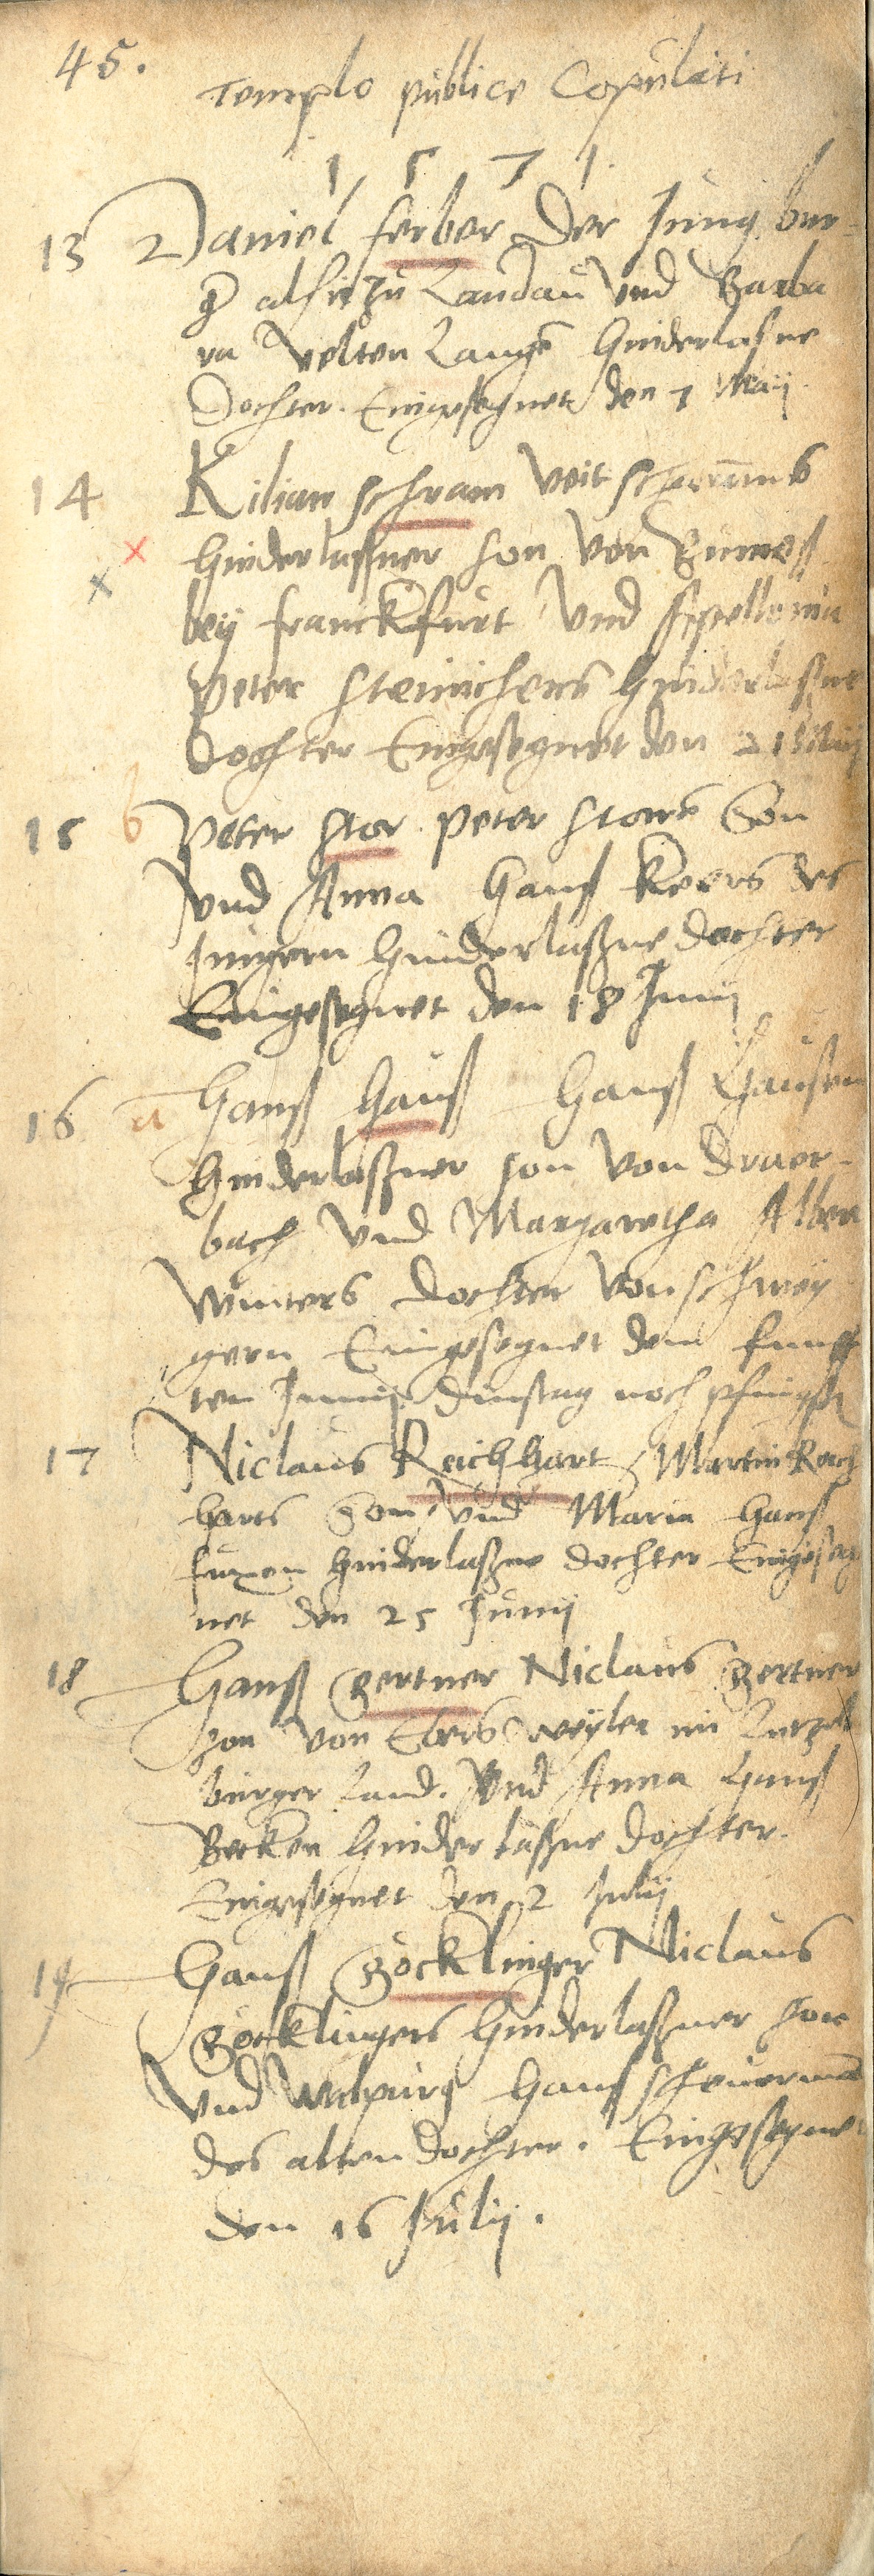 45.
Templo publice Copulati
1 5 7 1.
13 Daniel ferber der Jung bur-
ger alhie zu Landau vnd Barba
ra Velten Langs hinderlasne
Dochter. Eingesegnet den 7 Maij.
14 Kilian schram Veit schrams
x hinderlassner son von
x beÿ franckfurt vnd Appellonia
Peter steinichens hinderlaßne
dochter Eingesegnet den 21 Maij
15 b Peter stor. Peter storn Son
vnd Anna Hans Keers des
Jungern hinderlaßne dochter
Eingesegnet den 18 Junij
16 a Hanß Hauß Hanß Hausen
hinderlaßner son von
bach vnd Margaretha
winters dochter von schwey
gern Eingesegnet den funff
ten Junij dinstag noch pfingst
17 Niclaus Reichhart Martin Reich
harts Son, vnd Maria Hans
fuxen hinderlaßne dochter Eingeseg
net den 25 Junij
18 Hanß gertner Niclaus gertner
son von Ebersweyler im Lutzel
burger Land. Vnd Anna Hans
Becken hinderlaßne dochter.
Eingesegnet den 2 Julij
19 Hanß göcklinger Niclaus
göcklingers hinderlaßner son
vnd Walpurg Hans scheuerman
des alten dochter. Eingesegnet
den 16 Julij.